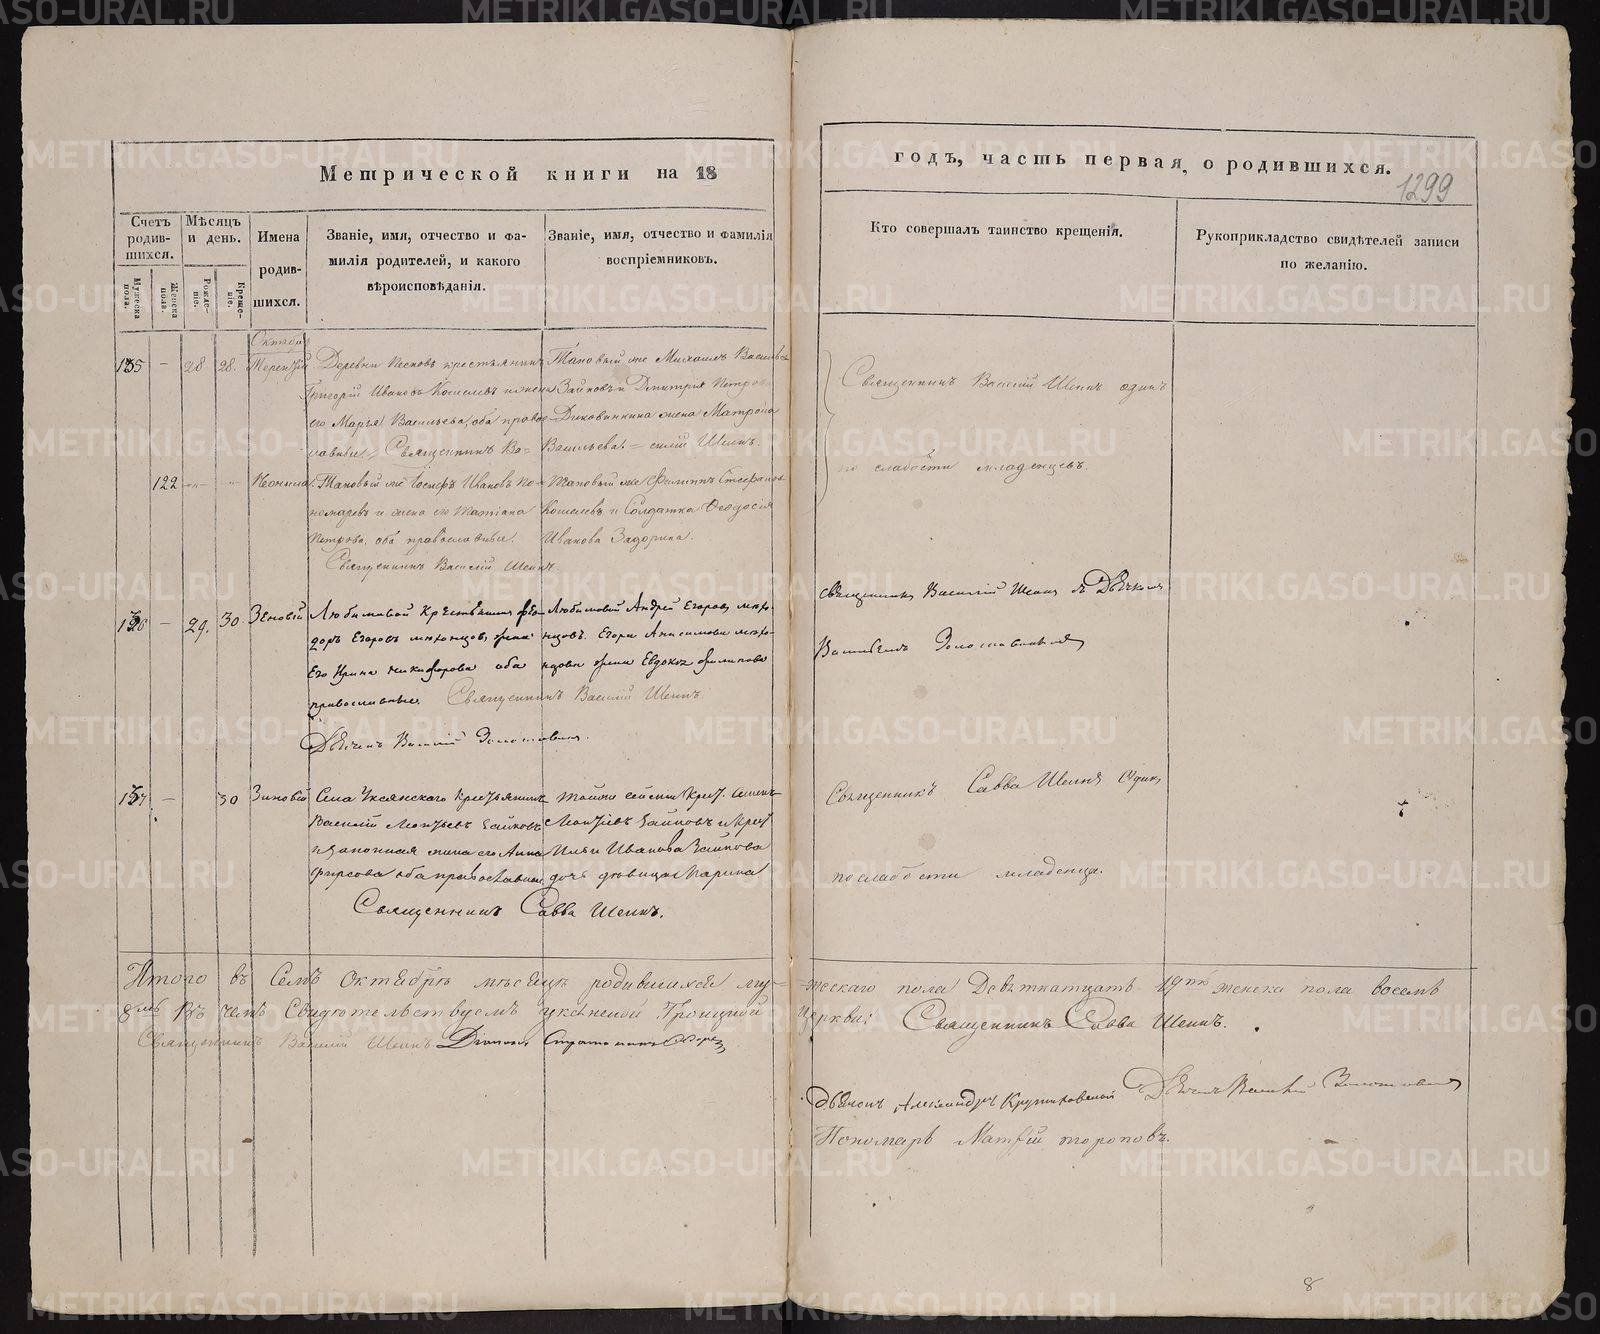 Метрической книги на 18
годъ, часть первая, о родившихся.
1299
Счетъ родив-шихся.
Мѣсяцъ и день.
Имена родив-шихся.
Званіе, имя, отчество и фа-
милія родителей, и какого
вѣроисповѣданія.
Званіе, имя, отчество и фамилія
воспріемниковъ.
Кто совершалъ таинство крещенія.
Рукоприкладство свидѣтелей записи
по желанію.
Мужеска пола.
Женска пола.
Рожде-ніе.
Креще-ніе.
Октябрь
135 — 28 28. Терентій
Деревни крестьянинъ
Григорій Ивановъ Кошелевъ и жена
его Марья Васильева, оба право-
славные Священникъ Ва=
Таковый же Михаилъ Васильевъ
Зайковъ и Дмитрія Петрова
жена Матрона
Васильева. = силій Шеинъ.
Священникъ Василій Шеинъ одинъ
по слабости младенцевъ.
122 Неонила
Таковый же Іосифъ Ивановъ По-
номаревъ и жена его Татіана
Петрова, оба православные.
Священникъ Василій Шеинъ.
Таковый же Филиппъ Стефановъ
Кошелевъ и Солдатка Феодосія
Иванова Задорина.
136 — 29. 30 Зеновій
Любимовой Крестьянин Фео-
доръ Егоровъ жена
Его Ирина Никифорова оба
православные. Священникъ Василій Шеинъ.
Дьячекъ Василій
Любимовой Андрей Егоровъ
Егора Анисимова
жена Евдокія Филипова
священникъ Василій Шеинъ съ Дьячкомъ
Васильемъ
137 — 30 Зиновій
Села Уксянскаго Крестьянинъ
Василій Леонтьевъ Зайковъ
и законная жена его Анна
Фирсова оба православные
Священникъ Савва Шеинъ.
тойже села Крест.
Леонтіевъ Зайковъ и Крест
Ильи Иванова Зайкова
дочь дѣвица Марина
Священникъ Савва Шеинъ Одинъ
по слабости младенца.
Итого въ Семъ Октябрѣ мѣсяцѣ родившихся му-
жескаго пола Девятнатцать 19ть женска пола восемь
8мь Въ чемъ Свидѣтельствуемъ Троицкой
Церкви: Священникъ Савва Шеинъ.
Священникъ Василій Шеинъ. Діаконъ
Дьячекъ Василій
Дьяконъ Александръ
Пономарь Матфій тороповъ.
8
METRIKI.GASO-URAL.RU